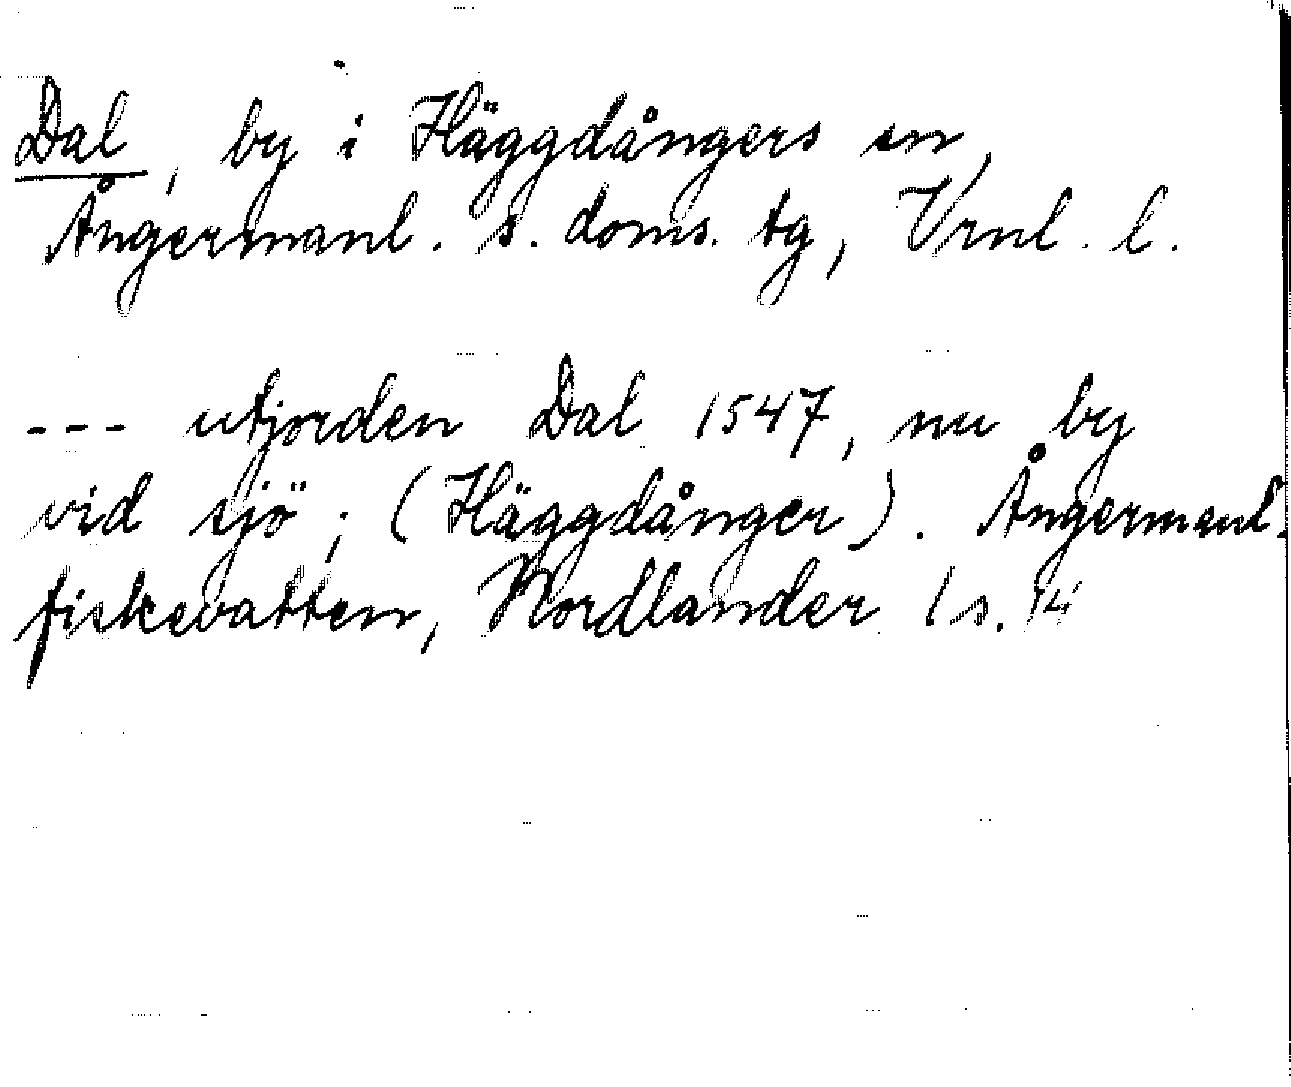 Dal, by i Häggdångers sn,
Ångermanl. s. doms. tg, Vrnl. l.
--- utjorden Dal 1547, nu by
vid sjö; (Häggdånger). Ångermanl.
fiskevatten, Nordlander I s. 14